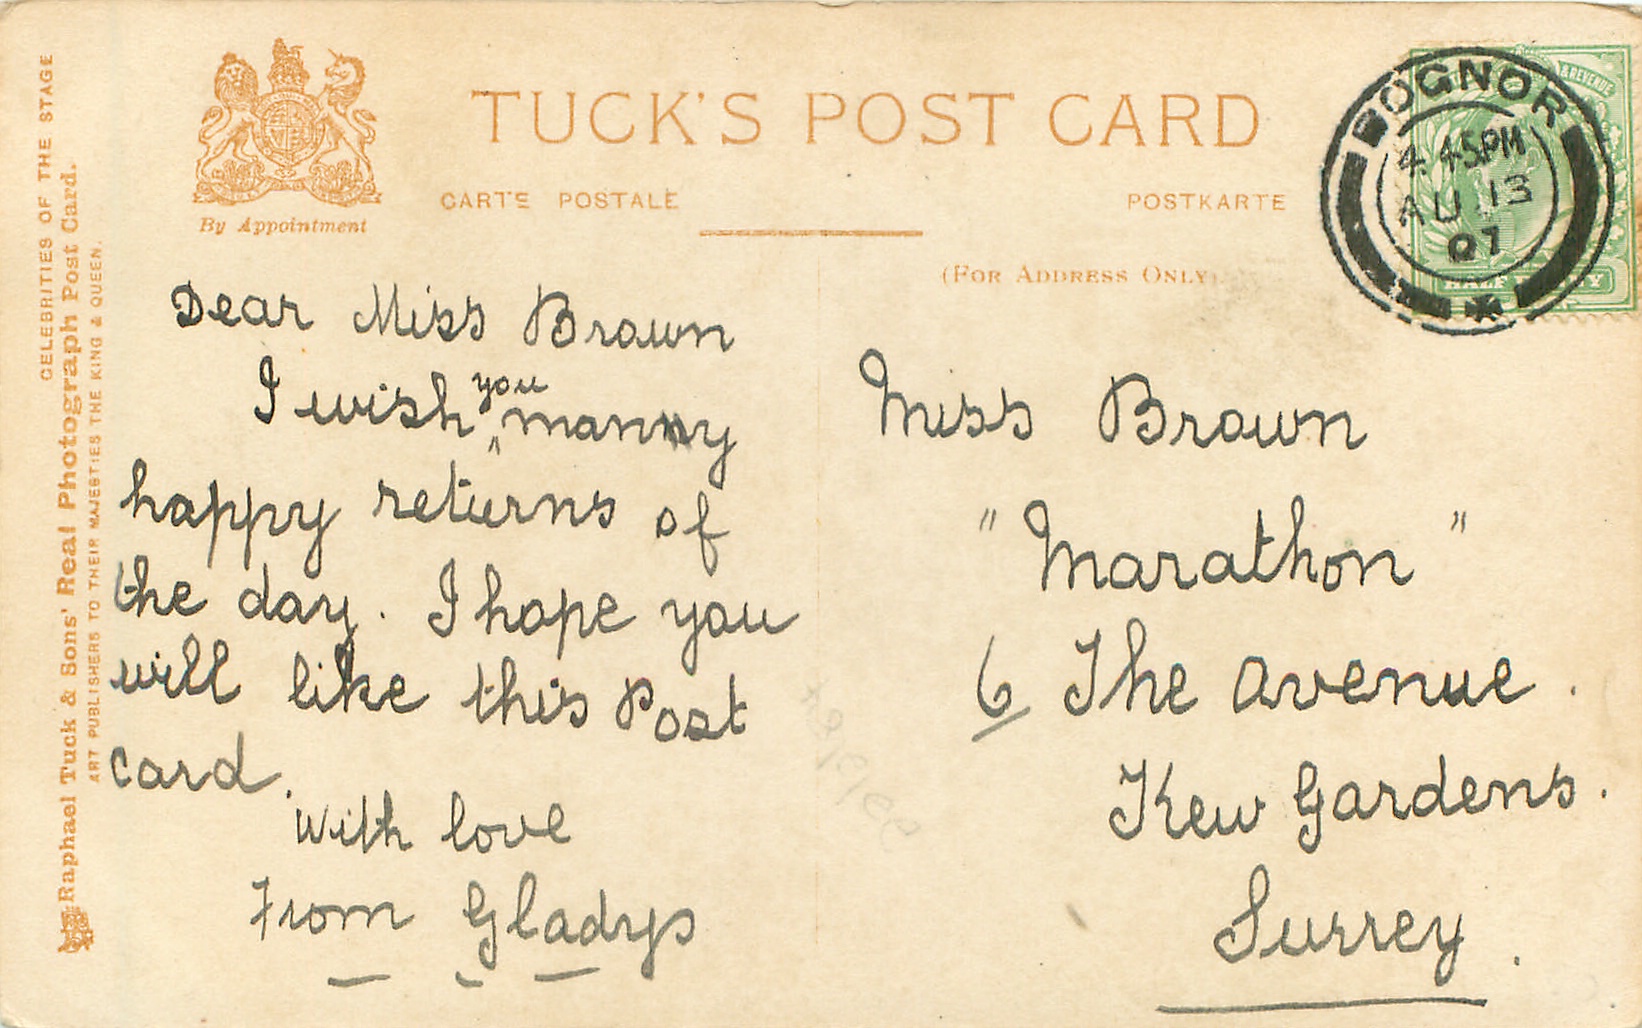 CELEBRITIES OF THE STAGE
Raphael Tuck & Sons' Real Photograph Post Card.
ART PUBLISHERS TO THEIR MAJESTIES THE KING & QUEEN.
By Appointment
TUCK'S POST CARD
CARTE POSTALE
POSTKARTE
(FOR ADDRESS ONLY)
BOGNOR
4.45PM
AU 13
07
& REVENUE
Dear Miss Brown
I wish you manny
happy returns of
the day. I hope you
will like this Post
card.
With love
From Gladys
Miss Brown
"Marathon"
6 The Avenue.
Kew Gardens.
Surrey.